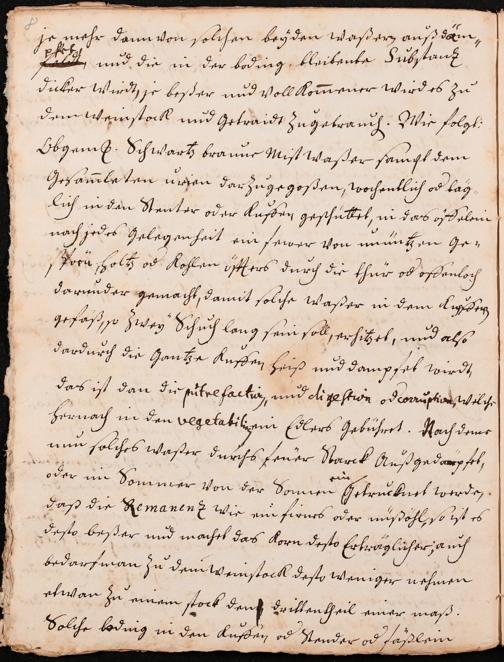 je mehr dann von solchen beyden waßern auß däm-
pfet und die in der boding bleibente Substanz
dicker wirdt, je beßer und vollkommener wird es zu
dem weinstock und Getraidt zugebrauch. Wie folgt:
Obgem. Schwartz braune Mist waßer sampt dem
Gesammleten urien darzugegoßen, wochentlich od täg-
lich in den Stenter oder Kuffen geschüttet, in das öffelein
nach jedes Gelegenheit ein fewer von unnützen Ge-
holtz od Kohlen öffters durch die thür od offenloch
darunder gemacht, damit solche waßer in dem kupffern
gefäß, so zwey Schuch lang sein soll, erhitzet, und also
dardurch die Gantze Kuffen heiß und dampfet wirdt,
das ist dan die putrefactio, und digestion od corruption, welche
hernach in den vegetabilien Edlers Gebühret. Nach deme
nun solches waßer durchs feüer Starck Außgedämpfet,
oder im Sommer von der Sonnen ein Getrucknet werde,
daß die Remanenz wie ein firnis oder nußöhl, so ist es
desto beßer und machet das Korn desto Erträglicher, auch
bedarf man zu dem weinstock desto weniger nehmen
etwan zu einem stock den drittentheil einer maß.
Solche boding in den Kuffen od Stender od fäßlein